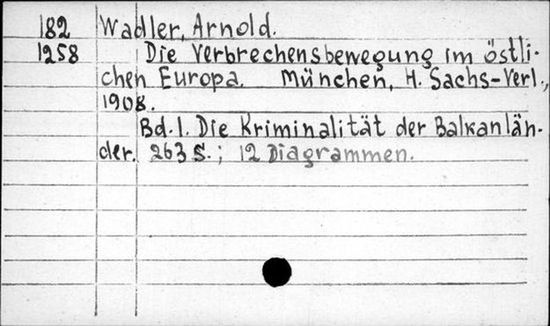 182 Wadler, Arnold.
1258 Die Verbrechensbewegung im östli-
chen Europa. München, H. Sachs-Verl.,
1908.
Bd. 1. Die Kriminalität der Balkanlän-
der. 263 S.; 12 Diagrammen.